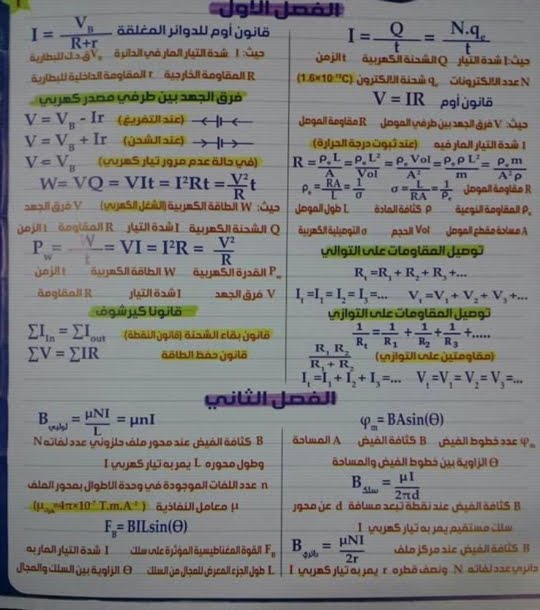 الفصل الأول
I = Q/t = N.qe/t
حيث: I شدة التيار Q الشحنة الكهربية t الزمن
N عدد الالكترونات qe شحنة الالكترون (1.6×10⁻¹⁹C)
قانون أوم V = IR
حيث: V فرق الجهد بين طرفي الموصل R مقاومة الموصل
I شدة التيار المار فيه (عند ثبوت درجة الحرارة)
R = ρeL/A = ρeL²/Vol = ρeVol/A² = ρeρL²/m = ρem/A²ρ
ρe = RA/L = 1/σ σ = L/RA = 1/ρe
R مقاومة الموصل
ρe المقاومة النوعية ρ كثافة المادة L طول الموصل
A مساحة مقطع الموصل Vol الحجم σ التوصيلية الكهربية
توصيل المقاومات على التوالي
Rt = R1 + R2 + R3 +...
It = I1 = I2 = I3 =... Vt = V1 + V2 + V3 +...
توصيل المقاومات على التوازي
1/Rt = 1/R1 + 1/R2 + 1/R3 +.....
R1 R2/R1 + R2 (مقاومتين على التوازي)
It = I1 + I2 + I3 =... Vt = V1 = V2 = V3 =...
قانون أوم للدوائر المغلقة I = VB/R+r
حيث: I شدة التيار المار في الدائرة VB ق.د.ك للبطارية
R المقاومة الخارجية r المقاومة الداخلية للبطارية
فرق الجهد بين طرفي مصدر كهربي
V = VB - Ir (عند التفريغ)
V = VB + Ir (عند الشحن)
V = VB (في حالة عدم مرور تيار كهربي)
W= VQ = VIt = I²Rt = V²/R t
حيث: W الطاقة الكهربية (الشغل الكهربي) V فرق الجهد
Q الشحنة الكهربية I شدة التيار R المقاومة t الزمن
Pw = W/t = VI = I²R = V²/R
Pw القدرة الكهربية W الطاقة الكهربية t الزمن
V فرق الجهد I شدة التيار R المقاومة
قانونا كيرشوف
ΣIin = ΣIout قانون بقاء الشحنة (قانون النقطة)
ΣV = ΣIR قانون حفظ الطاقة
الفصل الثاني
φm = BAsin(Θ)
φm عدد خطوط الفيض B كثافة الفيض A المساحة
Θ الزاوية بين خطوط الفيض والمساحة
B سلك = μI/2πd
B كثافة الفيض عند نقطة تبعد مسافة d عن محور
سلك مستقيم يمر به تيار كهربي I
B دائري = μNI/2r
B كثافة الفيض عند مركز ملف
دائري عدد لفاته N ونصف قطره r يمر به تيار كهربي I
B لولبي = μNI/L = μnI
B كثافة الفيض عند محور ملف حلزوني عدد لفاته N
وطول محوره L يمر به تيار كهربي I
n عدد اللفات الموجودة في وحدة الاطوال بمحور الملف
μ معامل النفاذية (μهواء=4π×10⁻⁷ T.m.A⁻¹)
FB = BILsin(Θ)
FB القوة المغناطيسية المؤثرة على سلك I شدة التيار المار به
L طول الجزء المعرض للمجال من السلك Θ الزاوية بين السلك والمجال